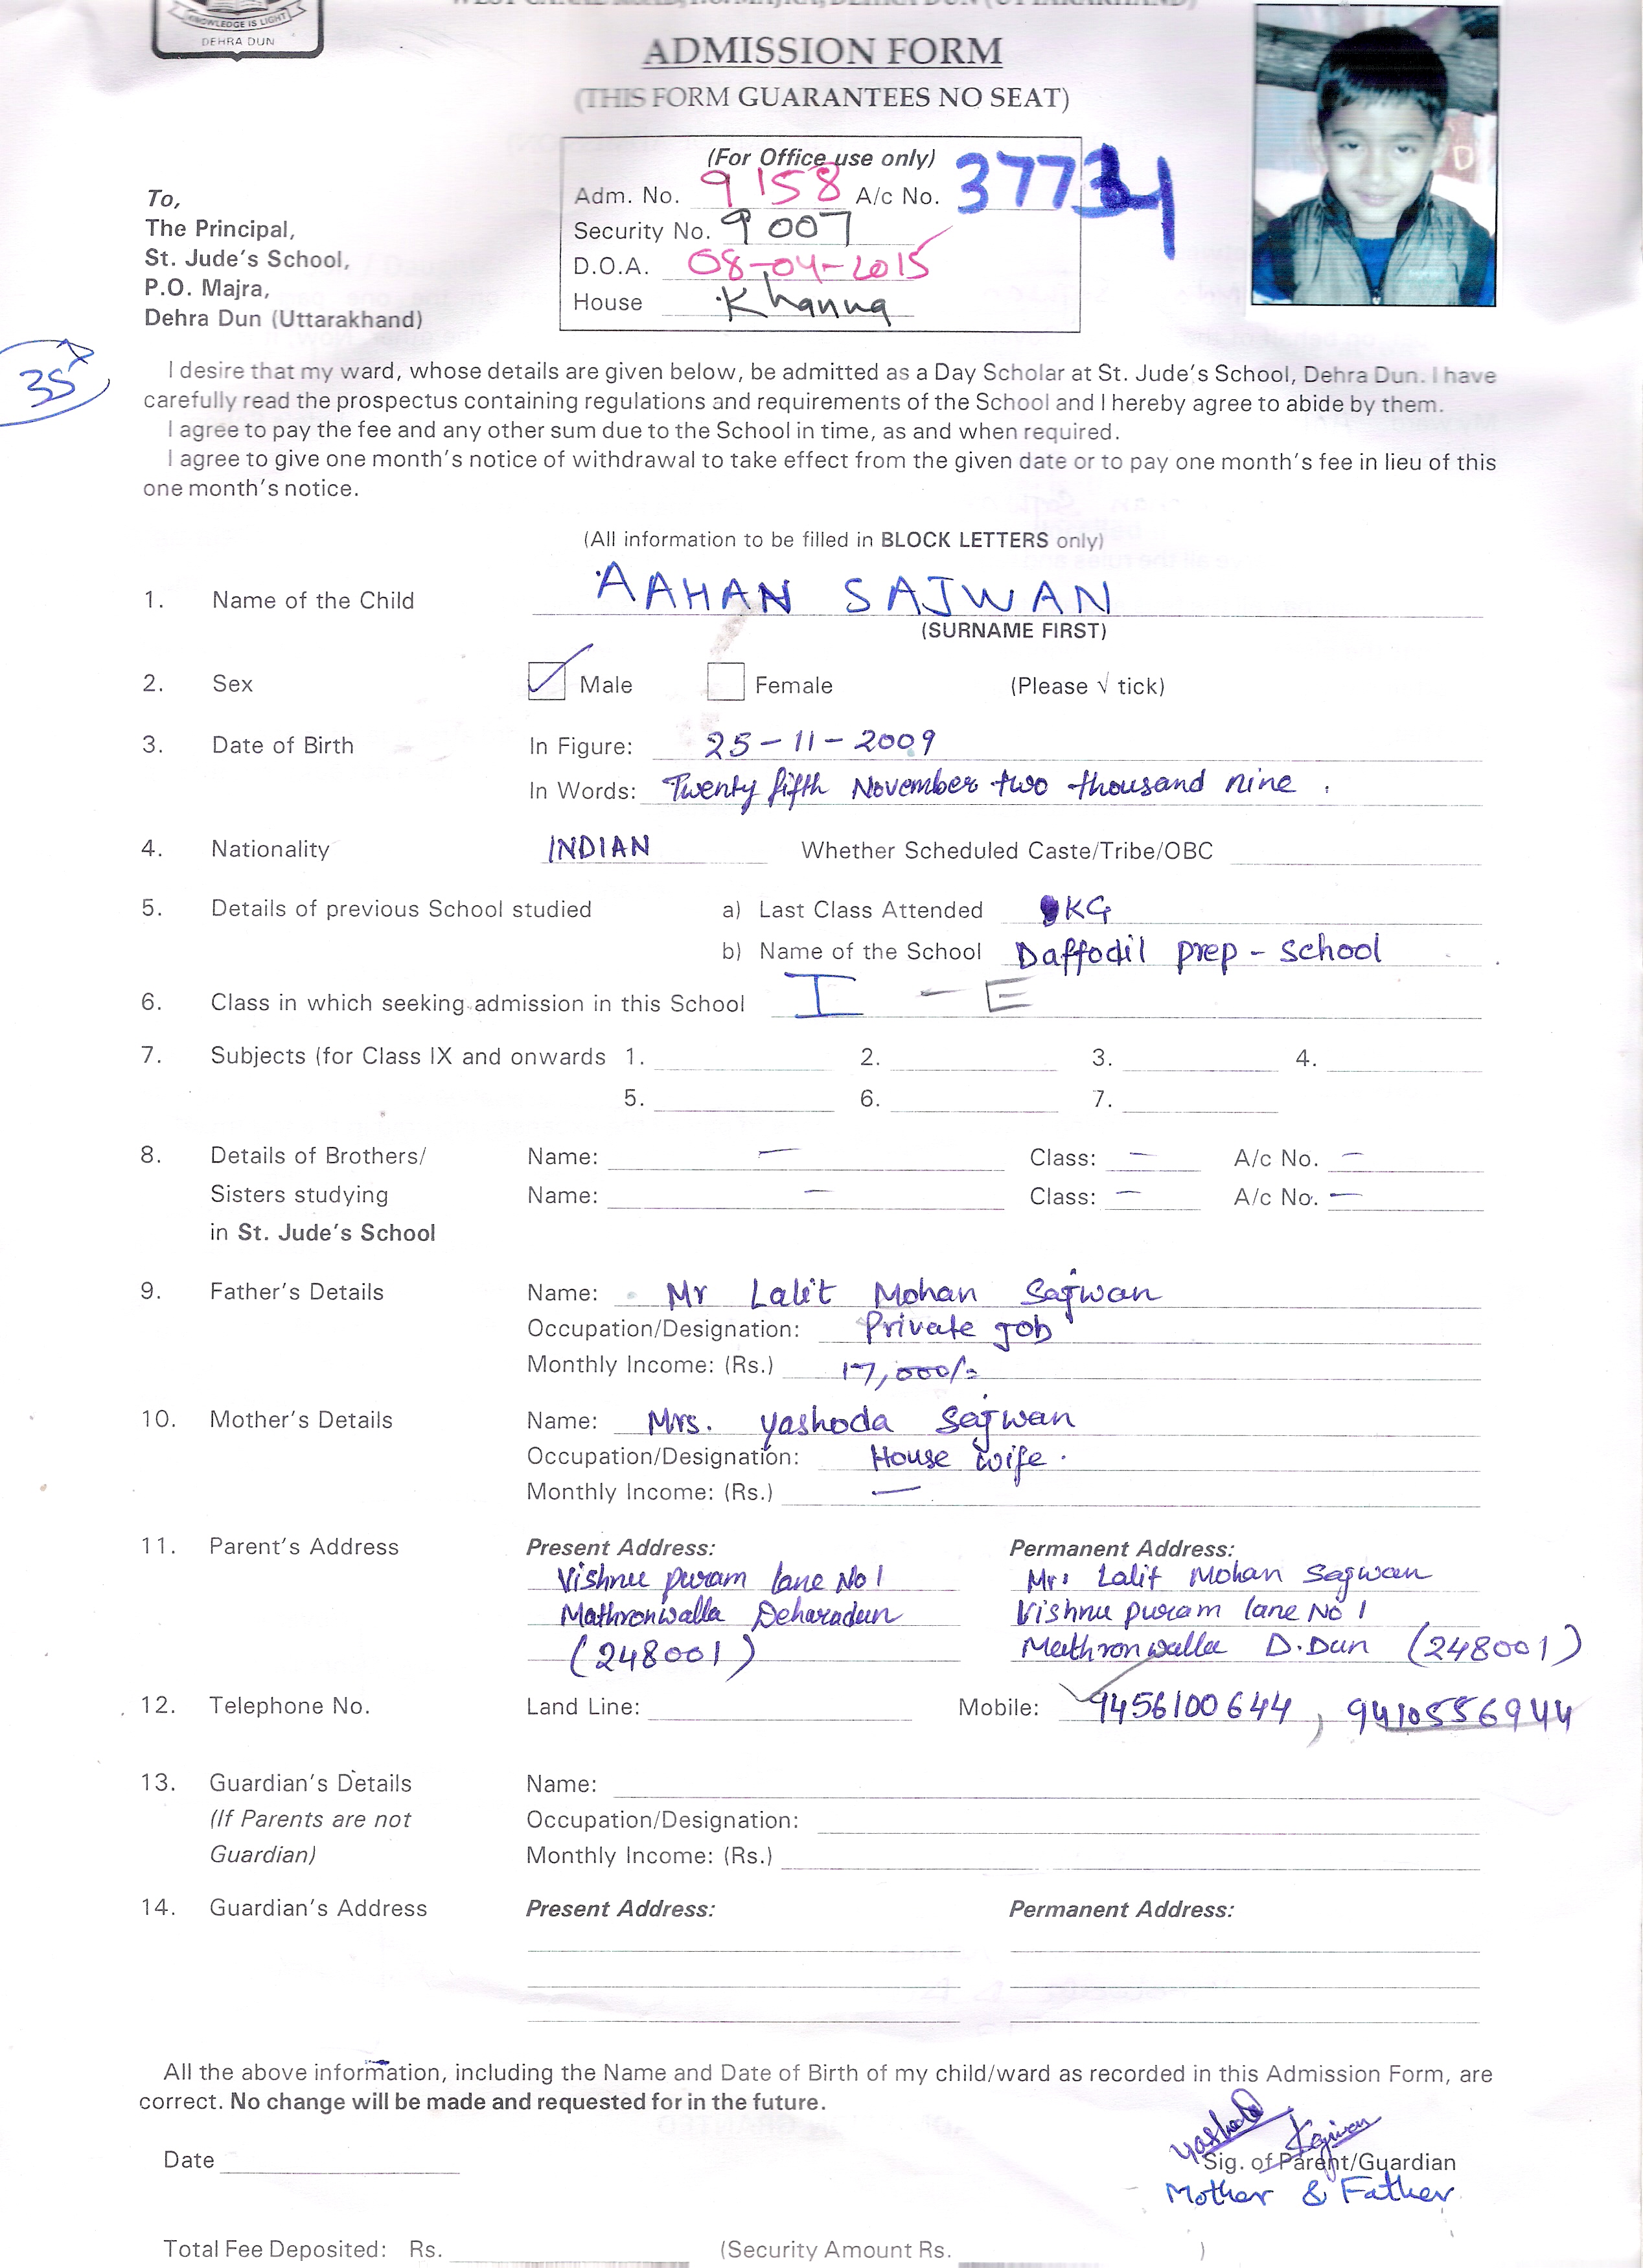 KNOWLEDGE IS LIGHT
DEHRA DUN
ADMISSION FORM
(THIS FORM GUARANTEES NO SEAT)
(For Office use only)
Adm. No. 9158 A/c No. 37734
Security No. 9007
D.O.A. 08-04-2015
House Khanna
To,
The Principal,
St. Jude's School,
P.O. Majra,
Dehra Dun (Uttarakhand)
35
I desire that my ward, whose details are given below, be admitted as a Day Scholar at St. Jude's School, Dehra Dun. I have
carefully read the prospectus containing regulations and requirements of the School and I hereby agree to abide by them.
I agree to pay the fee and any other sum due to the School in time, as and when required.
I agree to give one month's notice of withdrawal to take effect from the given date or to pay one month's fee in lieu of this
one month's notice.
(All information to be filled in BLOCK LETTERS only)
1. Name of the Child AAHAN SAJWAN
(SURNAME FIRST)
2. Sex Male Female (Please √ tick)
3. Date of Birth In Figure: 25-11-2009
In Words: Twenty fifth November two thousand nine.
4. Nationality INDIAN Whether Scheduled Caste/Tribe/OBC
5. Details of previous School studied a) Last Class Attended KG
b) Name of the School Daffodil prep-school
6. Class in which seeking admission in this School I - E
7. Subjects (for Class IX and onwards 1. 2. 3. 4.
5. 6. 7.
8. Details of Brothers/ Name: — Class: — A/c No. —
Sisters studying Name: — Class: — A/c No. —
in St. Jude's School
9. Father's Details Name: Mr Lalit Mohan Sajwan
Occupation/Designation: Private Job
Monthly Income: (Rs.) 17,000/-
10. Mother's Details Name: Mrs. yashoda Sajwan
Occupation/Designation: House wife.
Monthly Income: (Rs.) —
11. Parent's Address Present Address: Permanent Address:
Vishnu puram lane No 1 Mr. Lalit Mohan Sajwan
Mathronwalla Deharadun Vishnu puram lane No 1
(248001) Mathronwalla D.Dun (248001)
12. Telephone No. Land Line: Mobile: 9456100644, 9410556944
13. Guardian's Details Name:
(If Parents are not Occupation/Designation:
Guardian) Monthly Income: (Rs.)
14. Guardian's Address Present Address: Permanent Address:
All the above information, including the Name and Date of Birth of my child/ward as recorded in this Admission Form, are
correct. No change will be made and requested for in the future.
Yashoda
Date Sig. of Parent/Guardian
Mother & Father
Total Fee Deposited: Rs. (Security Amount Rs. )